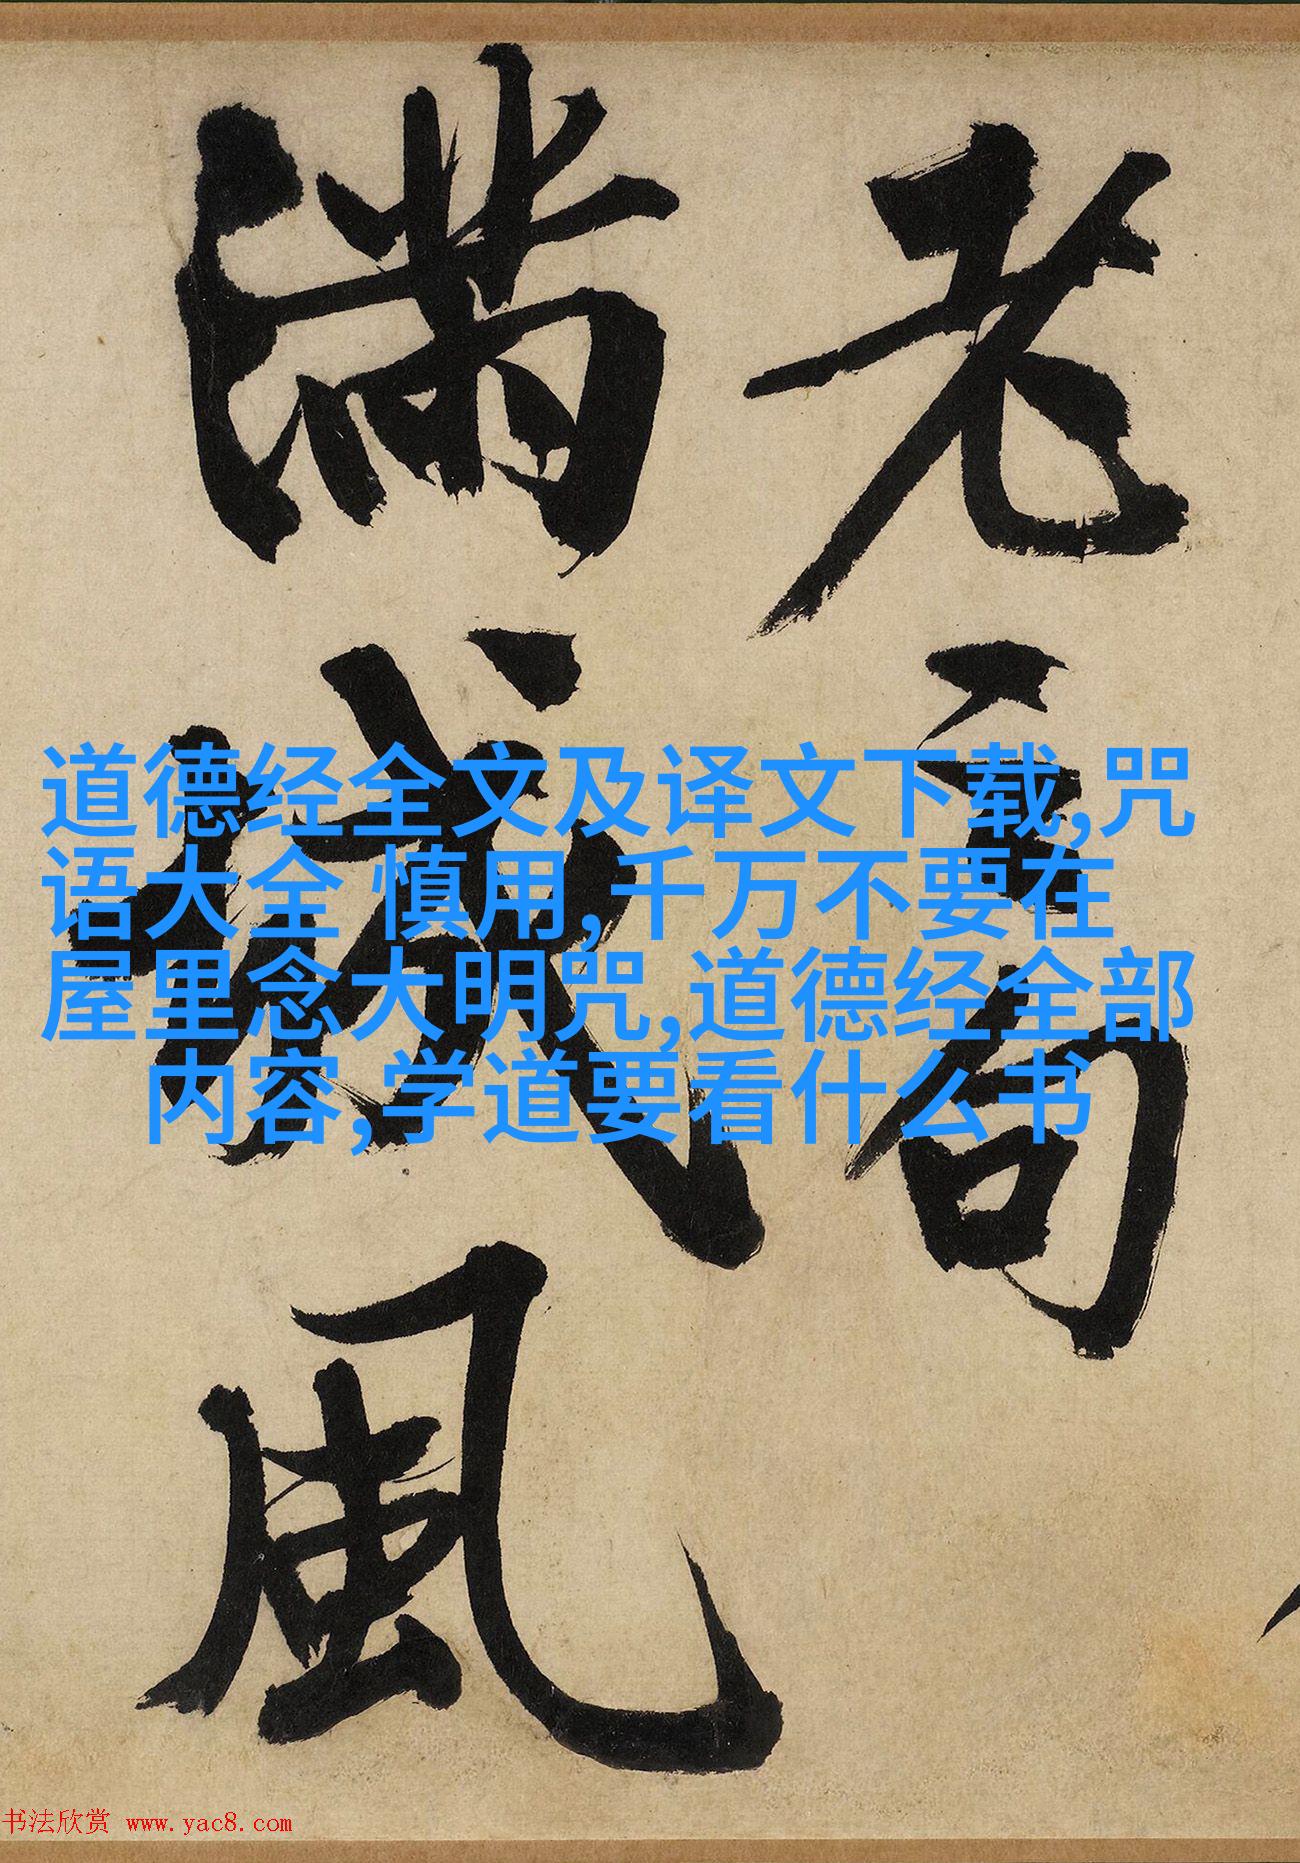 老
句
滿城風
道德经全文及译文下载,咒
语大全 慎用,千万不要在
屋里念大明咒,道德经全部
内容,学道要看什么书
书法欣赏 www.yac8.com